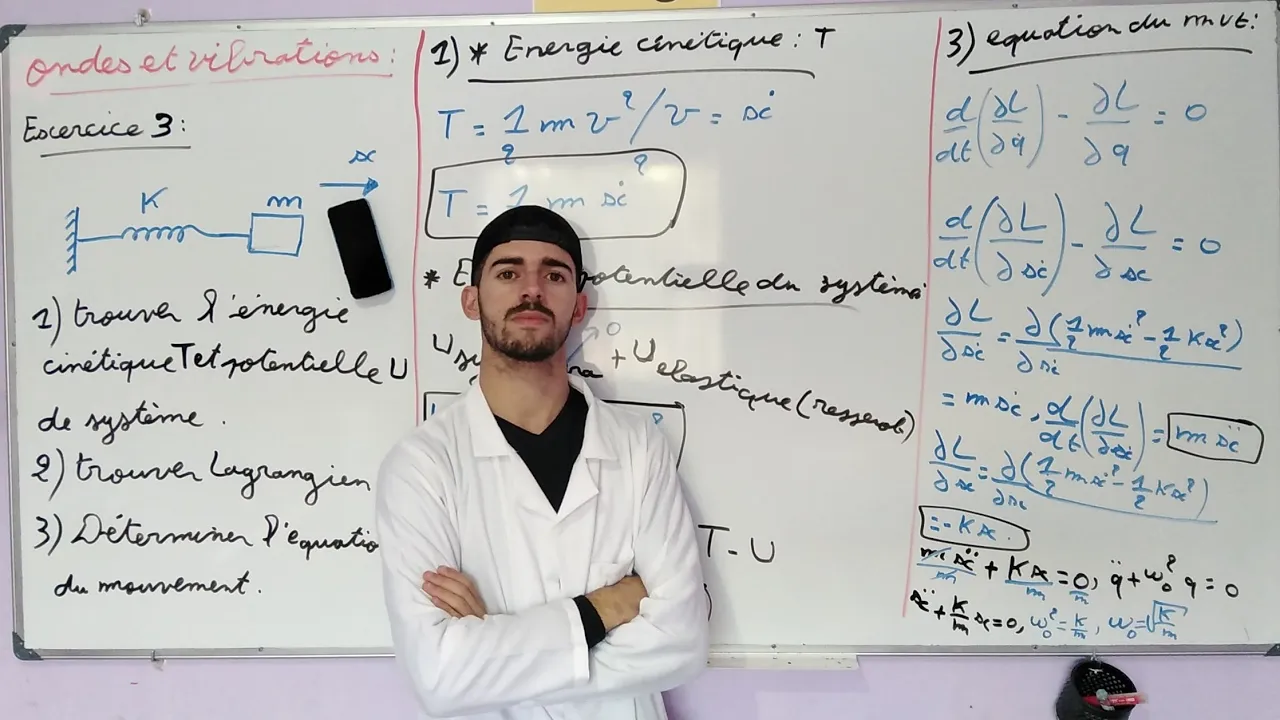 ondes et vibrations :
Escercice 3 :
x
K
m
1) trouver l'énergie
cinétique T et potentielle U
de système .
2) trouver Lagrangien
3) Déterminer l'équatio
du mouvement .
1) * Energie cinétique : T
T = 1/2 m v² / v = ẋ
T = 1/2 m ẋ²
* E potentielle du système
+ U elastique (ressort)
0
T - U
3) equation du mvt :
d/dt (∂L/∂q̇) - ∂L/∂q = 0
d/dt (∂L/∂ẋ) - ∂L/∂x = 0
∂L/∂ẋ = ∂(1/2 m ẋ² - 1/2 K x²)/∂ẋ
= m ẋ , d/dt (∂L/∂ẋ) = m ẍ
∂L/∂x = ∂(1/2 m ẋ² - 1/2 K x²)/∂x
= - K x .
m ẍ/m + K x/m = 0/m , q̈ + ω₀² q = 0
ẍ + K/m x = 0 , ω₀² = K/m , ω₀ = √(K/m)